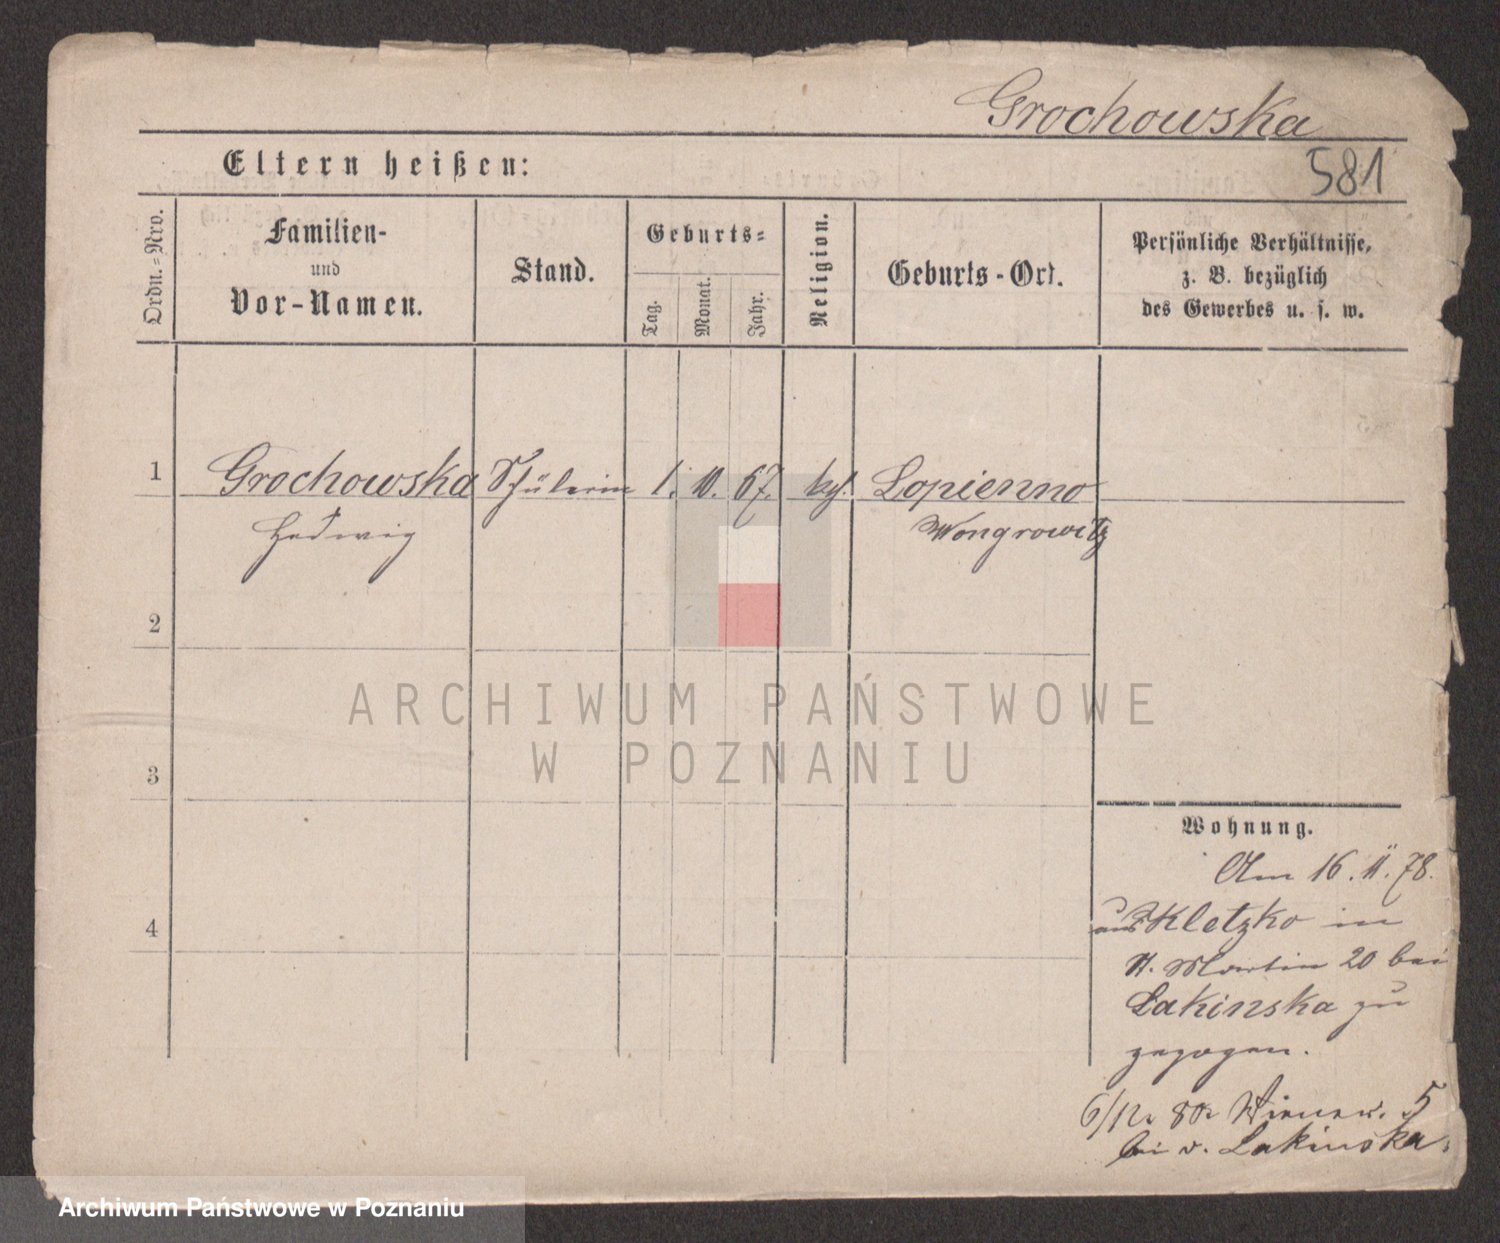 Grochowska
Eltern heißen:
581
Ordn.-Nro.
Familien-
und
Vor-Namen.
Stand.
Geburts-
Tag.
Monat.
Jahr.
Religion.
Geburts-Ort.
Persönliche Verhältnisse,
z. B. bezüglich
des Gewerbes u. s. w.
1 Grochowska Schülerin 1. 10. 67. kath. Lopienno
Hedwig Wongrowitz
2
3
4
ARCHIWUM PAŃSTWOWE
W POZNANIU
Wohnung.
Am 16. 11. 78.
aus Kletzko in
St. Martin 20 bei
Lakinska zu
gezogen.
6/12. 80. Wiener. 5
bei v. Lakinska.
Archiwum Państwowe w Poznaniu